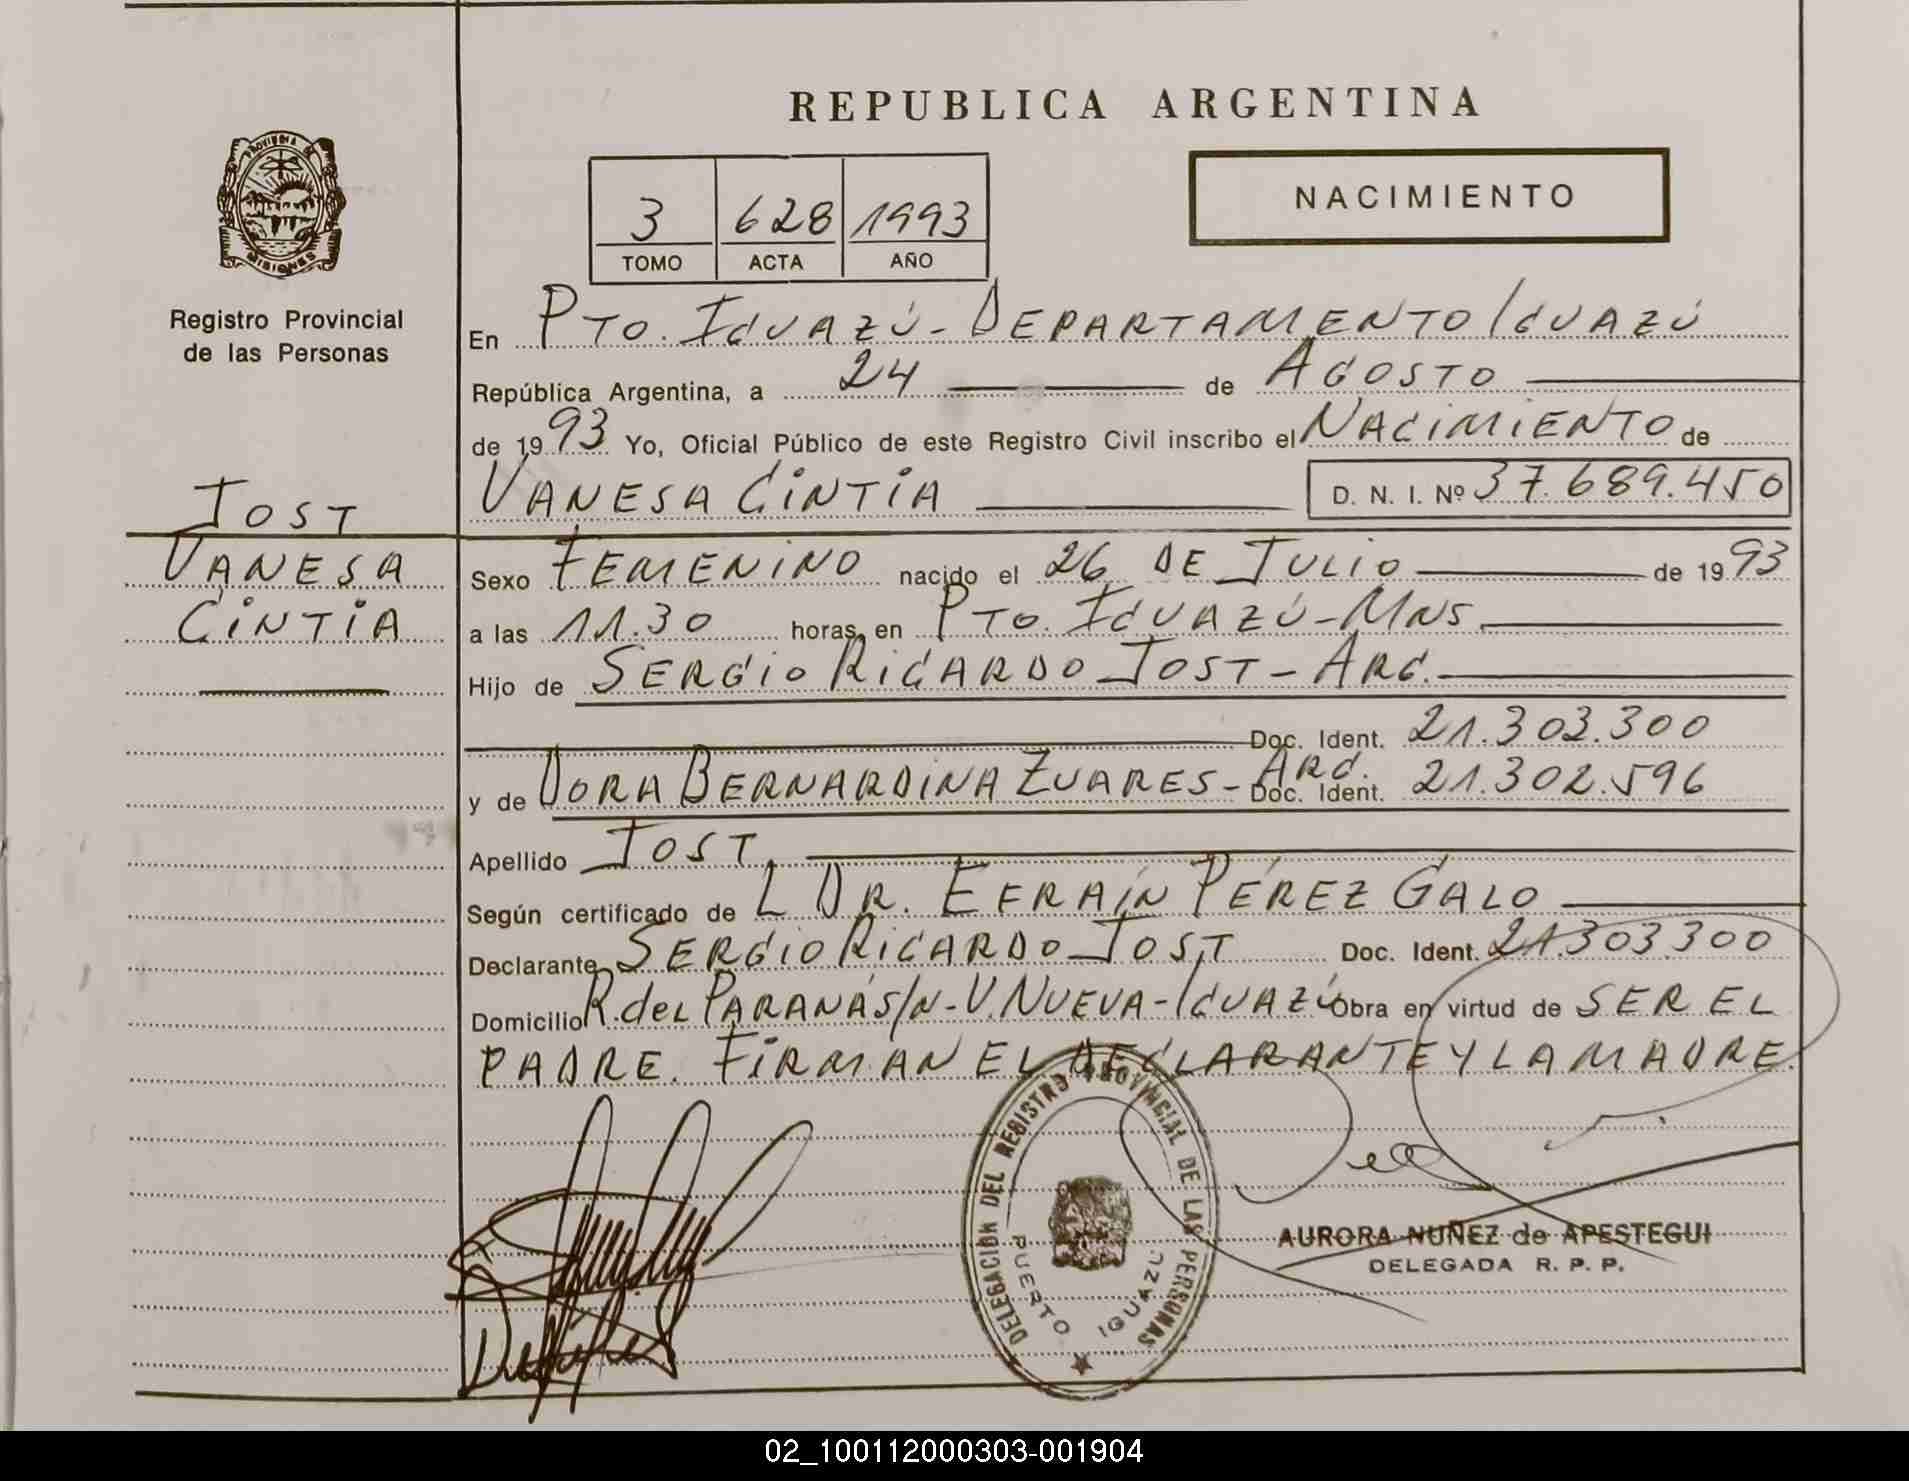 REPUBLICA ARGENTINA
PROVINCIA DE
MISIONES
Registro Provincial
de las Personas
NACIMIENTO
3 628 1993
TOMO ACTA AÑO
En PTO. IGUAZÚ - DEPARTAMENTO IGUAZÚ
República Argentina, a 24 de AGOSTO
de 1993 Yo, Oficial Público de este Registro Civil inscribo el NACIMIENTO de
VANESA CINTIA D. N. I. Nº 37.689.450
JOST
VANESA
CINTIA
Sexo FEMENINO nacido el 26 DE JULIO de 1993
a las 11.30 horas, en PTO. IGUAZÚ - MNS.
Hijo de SERGIO RICARDO JOST - ARG.
Doc. Ident. 21.303.300
y de DORA BERNARDINA ZUARES - ARG. Doc. Ident. 21.302.596
Apellido JOST
Según certificado de L DR. EFRAÍN PÉREZ GALO
Declarante SERGIO RICARDO JOST Doc. Ident. 21.303.300
Domicilio R. del PARANÁ S/N - V. NUEVA - IGUAZÚ Obra en virtud de SER EL
PADRE. FIRMAN EL DECLARANTE Y LA MADRE.
DELEGACION DEL REGISTRO PROVINCIAL DE LAS PERSONAS
PUERTO IGUAZU
AURORA NUÑEZ de APESTEGUI
DELEGADA R. P. P.
02_100112000303-001904